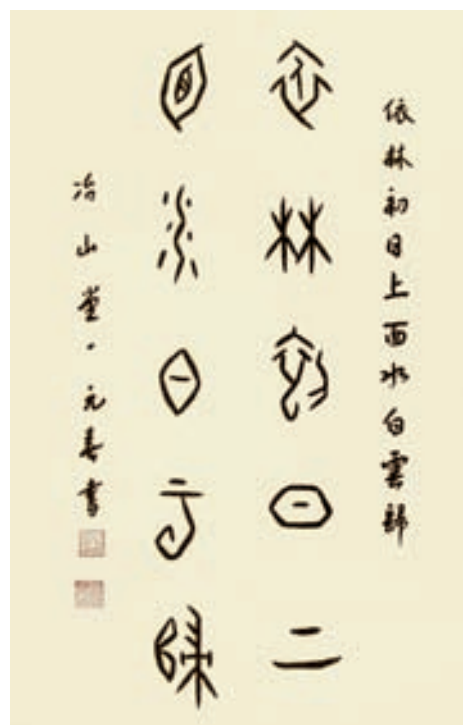 依林初日上面水白雲歸
依林初日上
面水白雲歸
冶山堂·元春書